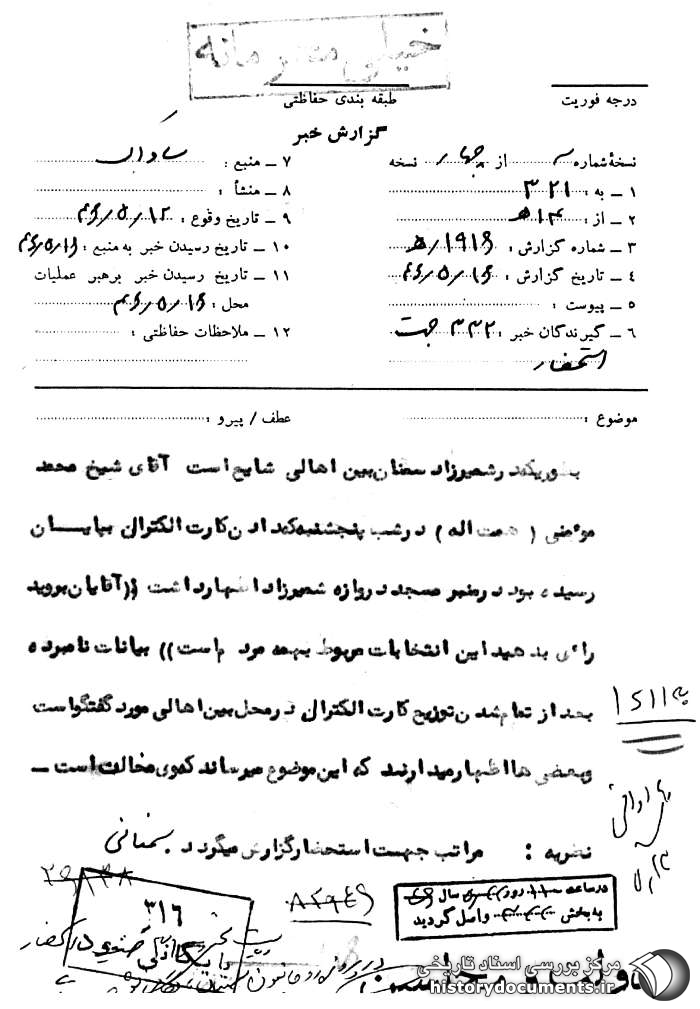 خیلی محرمانه
درجه فوریت
طبقه بندی حفاظتی
گزارش خبر
نسخهٔ شماره ۳ از چهار نسخه
۱ – به : ۳۲۱
۲ – از : ۱۳ ه‍
۳ – شماره گزارش : ۱۹۱۶/ه‍
۴ – تاریخ گزارش : ۴۶/۵/۱۶
۵ – پیوست :
۶ – گیرندگان خبر : ۳۳۲ جهت
استحضار
۷ – منبع : ساواک
۸ – منشأ :
۹ – تاریخ وقوع : ۴۶/۵/۱۲
۱۰ – تاریخ رسیدن خبر به منبع : ۴۶/۵/۱۶
۱۱ – تاریخ رسیدن خبر برهبر عملیات
محل : ۴۶/۵/۱۶
۱۲ – ملاحظات حفاظتی :
موضوع :
عطف / پیرو :
بطوریکه در شهمیرزاد سمنان بین اهالی شایع است آقای شیخ محمد
مومنی ( همت اله ) در شب پنجشنبه که دادن کارت الکترال بپایان
رسیده بود در منبر مسجد دروازه شهمیرزاد اظهار داشت ((آقایان بروید
رای بدهید این انتخابات مربوط بهمه مردم است)) بیانات نامبرده
بعد از تمام شدن توزیع کارت الکترال در محل بین اهالی مورد گفتگو است
و بعضی ها اظهار میدارند که این موضوع میرساند که وی مخالف است –
نظریه : مراتب جهت استحضار گزارش میگردد سمنانی
۳۱۶
در ساعت روز سال
به بخش واصل گردید
مرکز بررسی اسناد تاریخی
historydocuments.ir